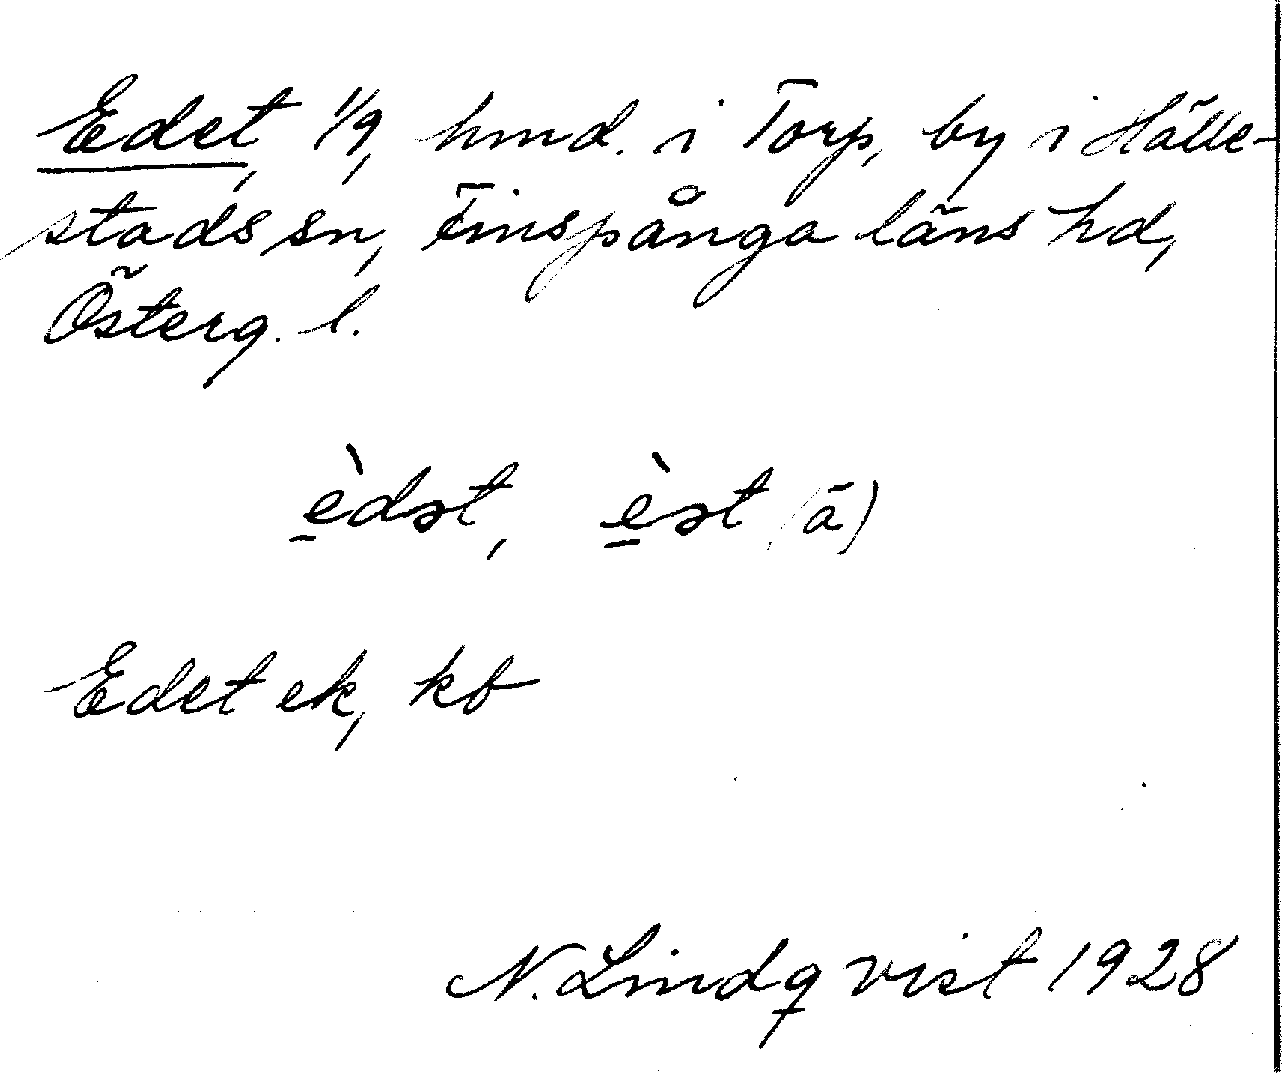 Edet, 1/9, hmd. i Torp, by i Hälle-
stads sn, Finspånga läns hd,
Österg. l.
è̱dət, è̱ət (ä)
Edet ek, kb
N. Lindqvist 1928